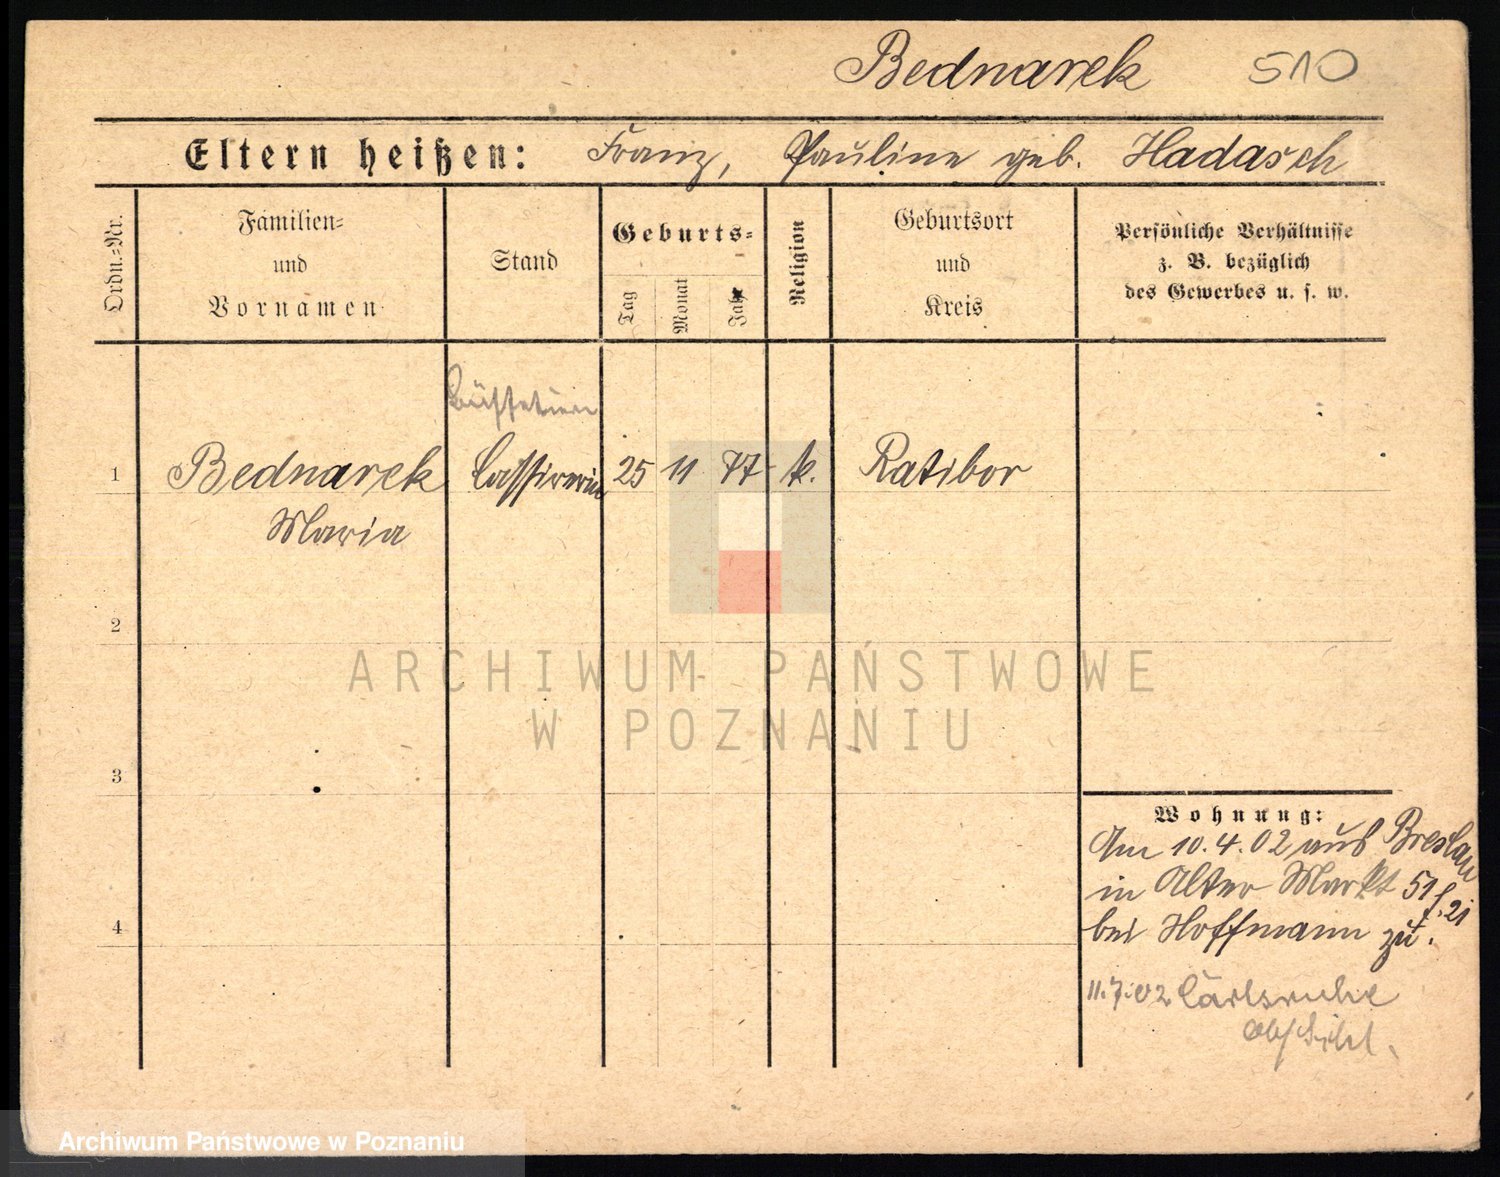 Bednarek 510
Eltern heißen: Franz, Pauline geb. Hadasch
Ordn.=Nr.
Familien=
und
Vornamen
Stand
Geburts=
Tag
Monat
Jahr
Religion
Geburtsort
und
Kreis
Persönliche Verhältnisse
z. B. bezüglich
des Gewerbes u. s. w.
1 Bednarek Cassirerin 25 11 77 k. Ratibor
Maria
2
3
4
Wohnung:
Am 10.4.02 aus Breslau
in Alter Markt 51
bei Hoffmann zu.
11.7.02 Carlsruhe
ARCHIWUM PAŃSTWOWE
W POZNANIU
Archiwum Państwowe w Poznaniu